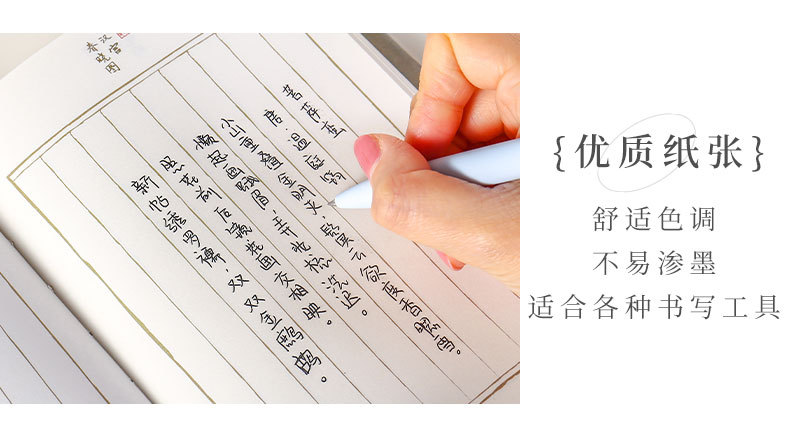 汉宫
春晓图
菩萨蛮
唐·温庭筠
小山重叠金明灭，鬓云欲度香腮雪。
懒起画蛾眉，弄妆梳洗迟。
照花前后镜，花面交相映。
新帖绣罗襦，双双金鹧鸪。
{优质纸张}
舒适色调
不易渗墨
适合各种书写工具